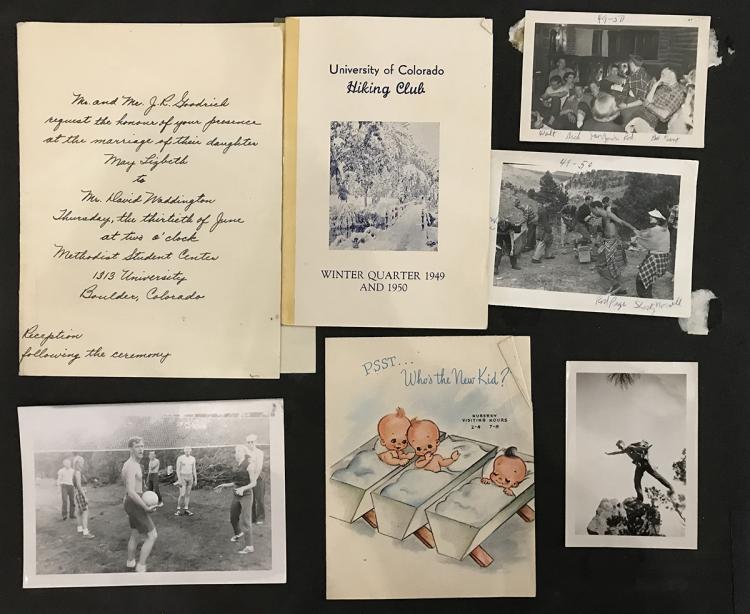 Mr. and Mrs. J.R. Goodrich
request the honour of your presence
at the marriage of their daughter
May Lizbeth
to
Mr. David Waddington
Thursday, the thirtieth of June
at two o'clock
Methodist Student Center
1313 University
Boulder, Colorado
Reception
following the ceremony
University of Colorado
Hiking Club
WINTER QUARTER 1949
AND 1950
49-50
Walt Dick
Rod
49-50
Rod Page
PSST...
Who's the New Kid?
NURSERY
VISITING HOURS
2-4 7-8